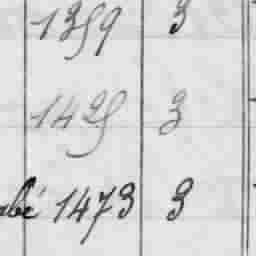 1359 3
1425 3
1473 3